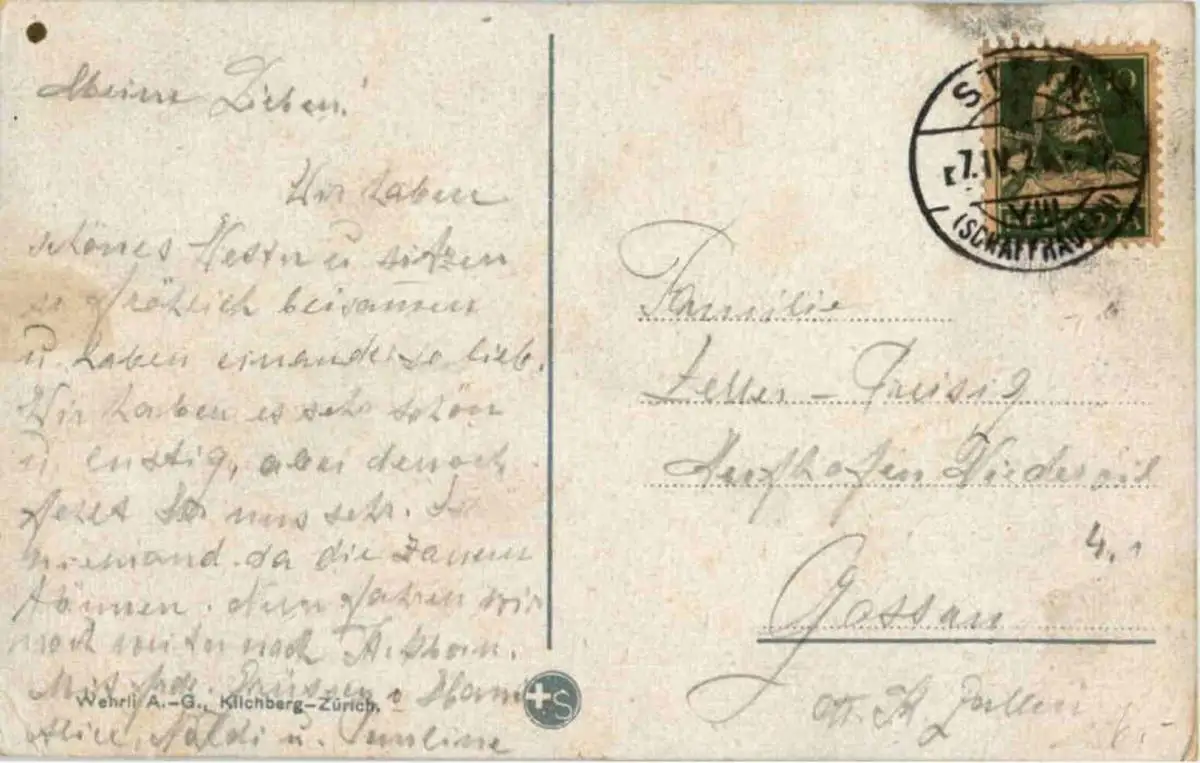 Meine Lieben!
Wir haben
schönes Wetter u sitzen
so fröhlich beisamen
u. haben einander so lieb.
Wir haben es sehr schön
u. lustig, aber denoch
fehlt Ihr uns sehr. Ist
niemand da die
können. Nun fahren wir
noch weiter nach
Mit frdl. Grüssen
Alice, u.
Wehrli A.-G., Kilchberg-Zürich.
+S
STEIN
7.IV.2
VIII
(SCHAFFHAUSEN)
10
Familie
Zeller - Preisig
Niederwil
4.1
Gossau
Kt. St. Gallen